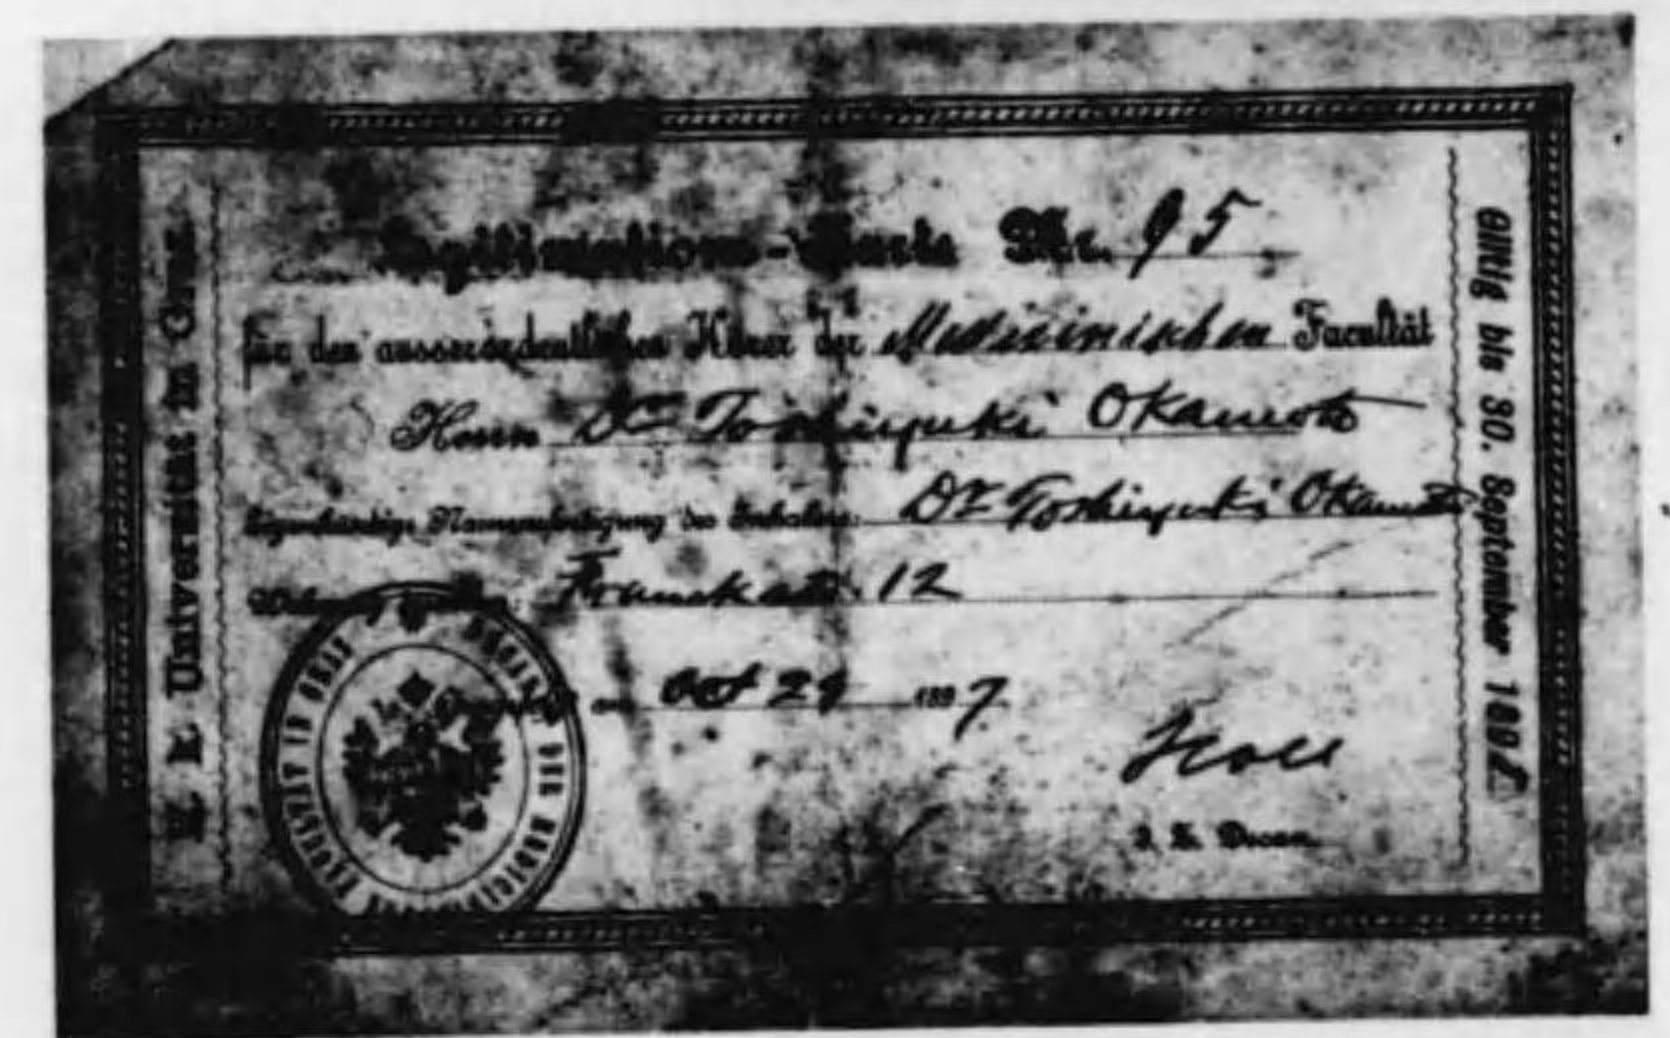 K. K. Universität in Graz.
Legitimations-Karte Nr. 95
für den ausserordentlichen Hörer der Medicinischen Facultät
Herrn Dr Toshiyuki Okamoto
Eigenhändige Namensfertigung des Inhabers: Dr Toshiyuki Okamoto
12
am Oct 29 1897
Holl
d. Z. Decan.
Giltig bis 30. September 189
DECANAT DER MEDICINISCHEN FACULTÄT IN GRAZ